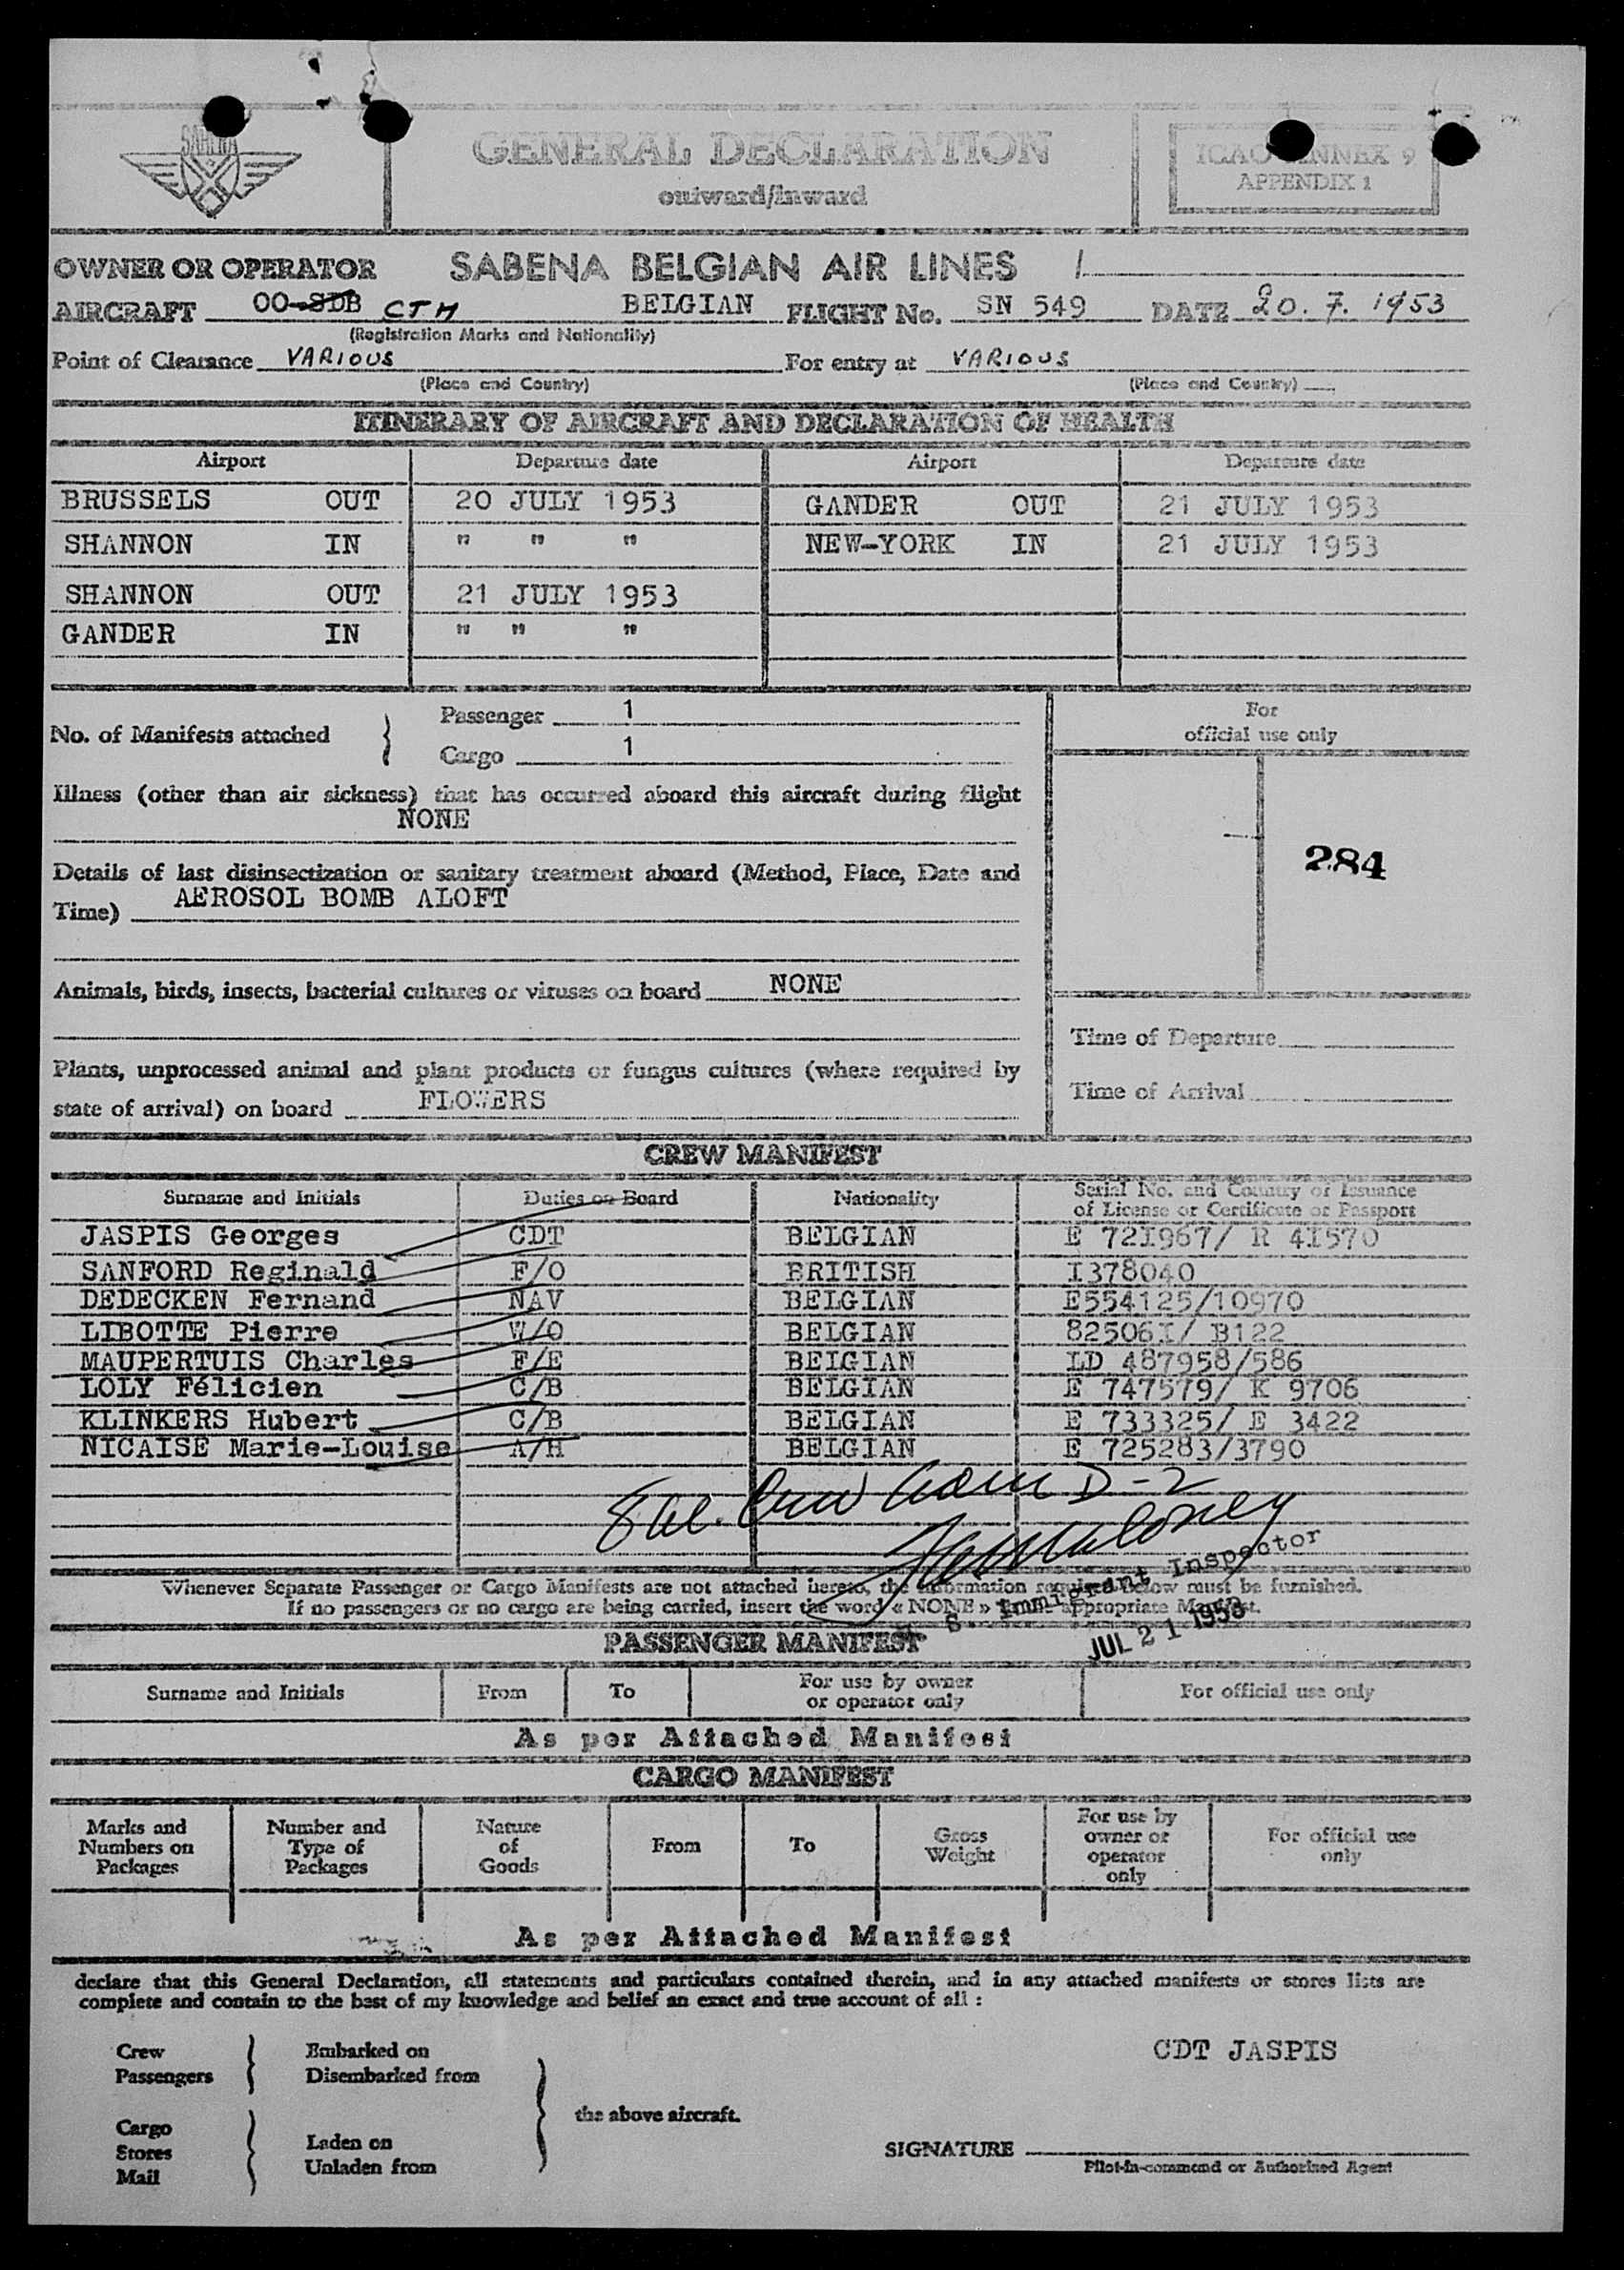 SABENA
GENERAL DECLARATION
outward/inward
ICAO ANNEX 9
APPENDIX 1
OWNER OR OPERATOR SABENA BELGIAN AIR LINES /
AIRCRAFT OO-SDB CTM BELGIAN FLIGHT No. SN 549 DATE 20. 7. 1953
(Registration Marks and Nationality)
Point of Clearance VARIOUS For entry at VARIOUS
(Place and Country) (Place and Country)
ITINERARY OF AIRCRAFT AND DECLARATION OF HEALTH
Airport Departure date Airport Departure date
BRUSSELS OUT 20 JULY 1953 GANDER OUT 21 JULY 1953
SHANNON IN " " " NEW-YORK IN 21 JULY 1953
SHANNON OUT 21 JULY 1953
GANDER IN " " "
No. of Manifests attached } Passenger 1
Cargo 1
For
official use only
Illness (other than air sickness) that has occurred aboard this aircraft during flight
NONE
284
Details of last disinsectization or sanitary treatment aboard (Method, Place, Date and
Time) AEROSOL BOMB ALOFT
Animals, birds, insects, bacterial cultures or viruses on board NONE
Time of Departure
Plants, unprocessed animal and plant products or fungus cultures (where required by
state of arrival) on board FLOWERS
Time of Arrival
CREW MANIFEST
Surname and Initials Duties on Board Nationality Serial No. and Country of Issuance
of License or Certificate or Passport
JASPIS Georges CDT BELGIAN E 72I967/ R 4I570
SANFORD Reginald F/O BRITISH I378040
DEDECKEN Fernand NAV BELGIAN E554125/10970
LIBOTTE Pierre W/O BELGIAN 82506I/ B122
MAUPERTUIS Charles F/E BELGIAN LD 487958/586
LOLY Félicien C/B BELGIAN E 747579/ K 9706
KLINKERS Hubert C/B BELGIAN E 733325/ E 3422
NICAISE Marie-Louise A/H BELGIAN E 725283/3790
Crew D-2
Maloney
S. Immigrant Inspector
JUL 21 1953
Whenever Separate Passenger or Cargo Manifests are not attached hereto, the information required below must be furnished.
If no passengers or no cargo are being carried, insert the word « NONE » in the appropriate Manifest.
PASSENGER MANIFEST
Surname and Initials From To For use by owner
or operator only For official use only
As per Attached Manifest
CARGO MANIFEST
Marks and
Numbers on
Packages
Number and
Type of
Packages
Nature
of
Goods
From
To
Gross
Weight
For use by
owner or
operator
only
For official use
only
As per Attached Manifest
declare that this General Declaration, all statements and particulars contained therein, and in any attached manifests or stores lists are
complete and contain to the best of my knowledge and belief an exact and true account of all :
Crew
Passengers
Embarked on
Disembarked from
CDT JASPIS
the above aircraft.
Cargo
Stores
Mail
Laden on
Unladen from
SIGNATURE
Pilot-in-command or Authorized Agent